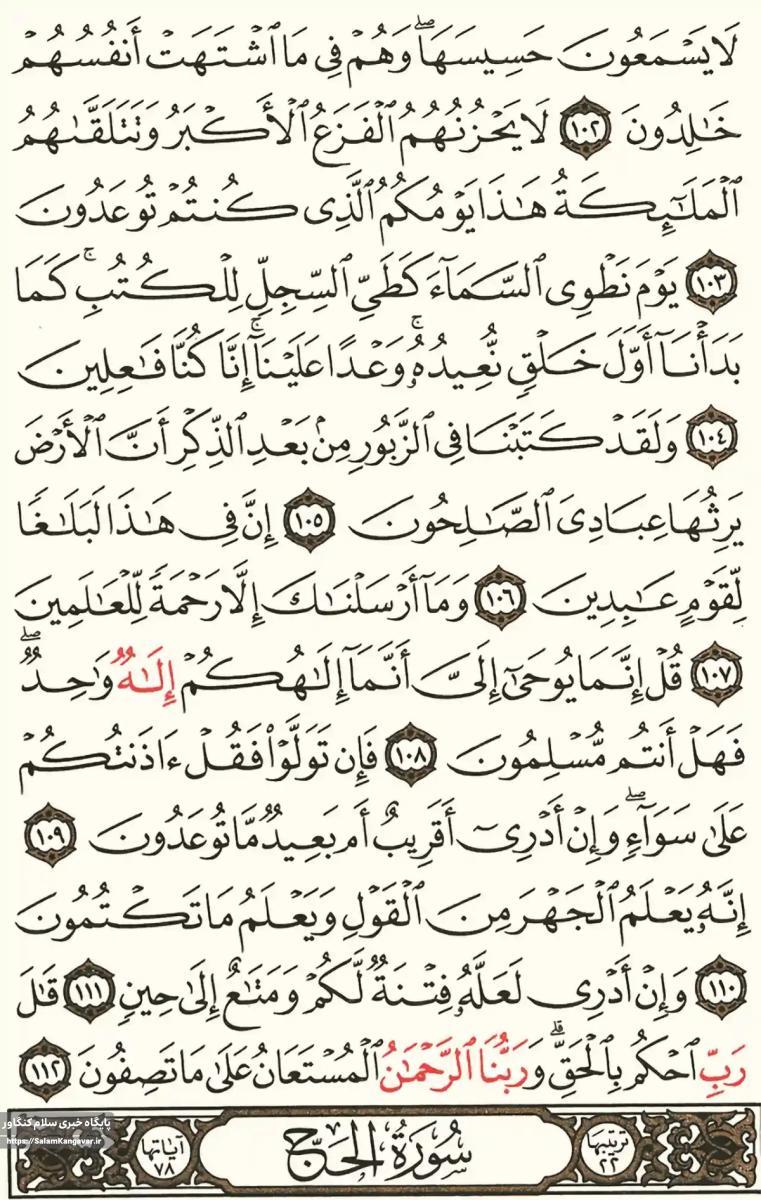 لَا يَسْمَعُونَ حَسِيسَهَا ۖ وَهُمْ فِي مَا ٱشْتَهَتْ أَنفُسُهُمْ
خَٰلِدُونَ ١٠٢ لَا يَحْزُنُهُمُ ٱلْفَزَعُ ٱلْأَكْبَرُ وَتَتَلَقَّىٰهُمُ
ٱلْمَلَٰٓئِكَةُ هَٰذَا يَوْمُكُمُ ٱلَّذِي كُنتُمْ تُوعَدُونَ
١٠٣ يَوْمَ نَطْوِي ٱلسَّمَآءَ كَطَيِّ ٱلسِّجِلِّ لِلْكُتُبِ ۚ كَمَا
بَدَأْنَآ أَوَّلَ خَلْقٍ نُّعِيدُهُۥ ۚ وَعْدًا عَلَيْنَآ ۚ إِنَّا كُنَّا فَٰعِلِينَ
١٠٤ وَلَقَدْ كَتَبْنَا فِي ٱلزَّبُورِ مِنۢ بَعْدِ ٱلذِّكْرِ أَنَّ ٱلْأَرْضَ
يَرِثُهَا عِبَادِيَ ٱلصَّٰلِحُونَ ١٠٥ إِنَّ فِي هَٰذَا لَبَلَٰغًا
لِّقَوْمٍ عَٰبِدِينَ ١٠٦ وَمَآ أَرْسَلْنَٰكَ إِلَّا رَحْمَةً لِّلْعَٰلَمِينَ
١٠٧ قُلْ إِنَّمَا يُوحَىٰٓ إِلَيَّ أَنَّمَآ إِلَٰهُكُمْ إِلَٰهٌ وَٰحِدٌ ۖ
فَهَلْ أَنتُم مُّسْلِمُونَ ١٠٨ فَإِن تَوَلَّوْا۟ فَقُلْ ءَاذَنتُكُمْ
عَلَىٰ سَوَآءٍ ۖ وَإِنْ أَدْرِيٓ أَقَرِيبٌ أَم بَعِيدٌ مَّا تُوعَدُونَ ١٠٩
إِنَّهُۥ يَعْلَمُ ٱلْجَهْرَ مِنَ ٱلْقَوْلِ وَيَعْلَمُ مَا تَكْتُمُونَ
١١٠ وَإِنْ أَدْرِي لَعَلَّهُۥ فِتْنَةٌ لَّكُمْ وَمَتَٰعٌ إِلَىٰ حِينٍ ١١١ قَٰلَ
رَبِّ ٱحْكُم بِٱلْحَقِّ ۗ وَرَبُّنَا ٱلرَّحْمَٰنُ ٱلْمُسْتَعَانُ عَلَىٰ مَا تَصِفُونَ ١١٢
ترتيبها ٢٢ سُورَةُ الحَجّ آياتها ٧٨
پایگاه خبری سلام کنگاور
https://SalamKangavar.ir